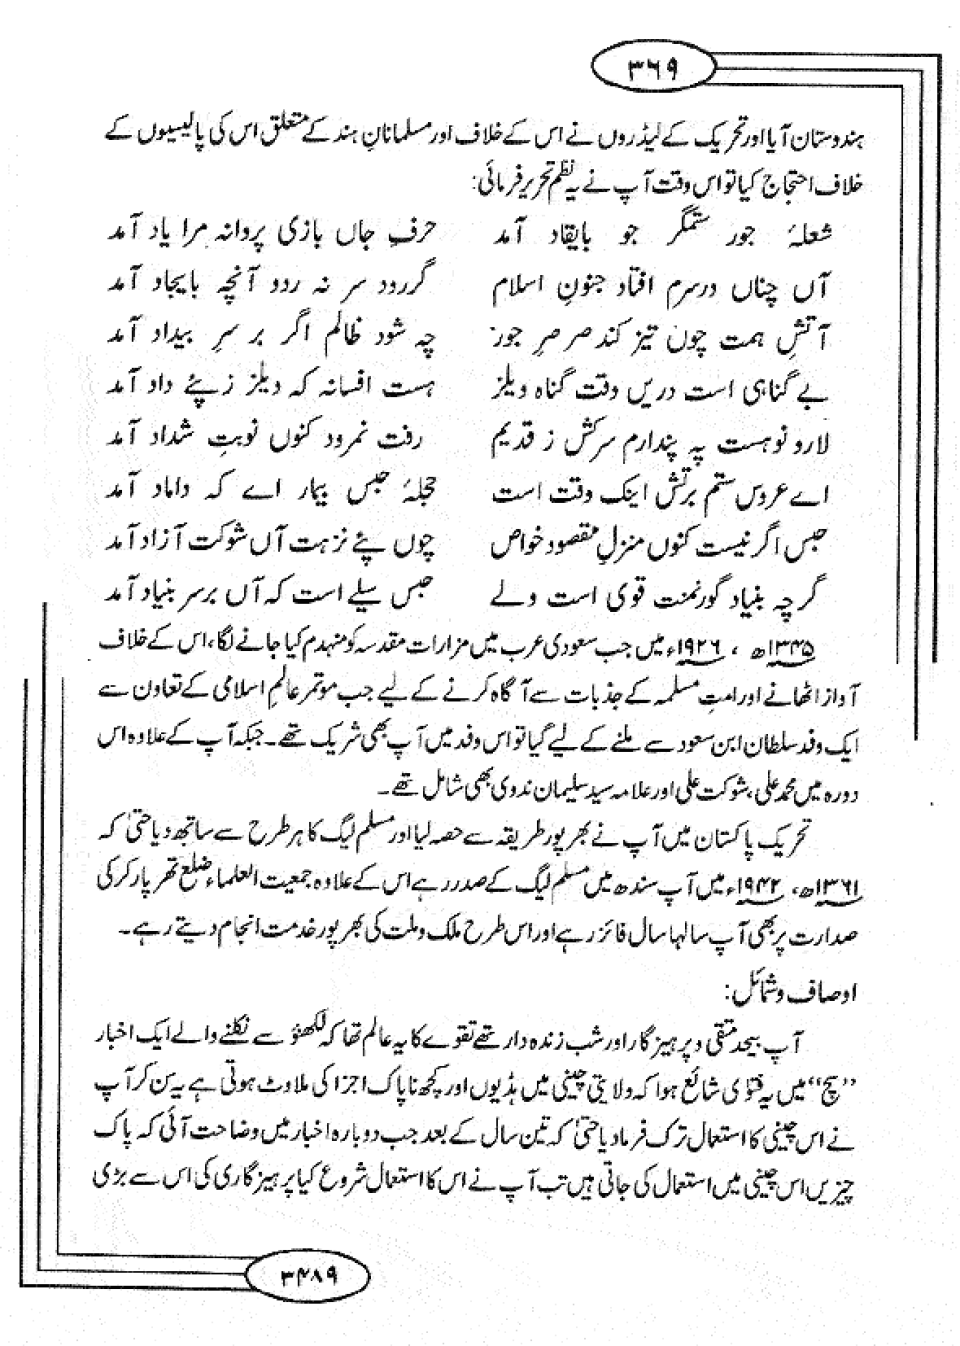 ۳۶۹
ہندوستان آیا اور تحریک کے لیڈروں نے اس کے خلاف اور مسلمانانِ ہند کے متعلق اس کی پالیسیوں کے
خلاف احتجاج کیا تو اس وقت آپ نے یہ نظم تحریر فرمائی:
شعلۂ جور ستمگر جو بایقاد آمد حرفِ جاں بازی پروانہ مرا یاد آمد
آں چناں درسرم افتاد جنونِ اسلام گررود سر نہ ردو آنچہ بایجاد آمد
آتشِ ہمت چوں تیز کند صرصرِ جور چہ شود ظالم اگر بر سرِ بیداد آمد
بے گناہی است دریں وقت گناہ ویلز ہست افسانہ کہ ویلز زپئے داد آمد
لارو نوہست پہ پندارم سرکش ز قدیم رفت نمرود کنوں نوبتِ شداد آمد
اے عروس ستم برتش اینک وقت است حجلۂ حبس بیمار اے کہ داماد آمد
حبس اگر نیست کنوں منزلِ مقصود خواص چوں پئے نزہت آں شوکت آزاد آمد
گرچہ بنیاد گورنمنت قوی است ولے حبس سیلے است کہ آں برسر بنیاد آمد
۱۳۴۵ھ ، ۱۹۲۶ء میں جب سعودی عرب میں مزارات مقدسہ کو منہدم کیا جانے لگا، اس کے خلاف
آواز اٹھانے اور امتِ مسلمہ کے جذبات سے آگاہ کرنے کے لیے جب موتمر عالمِ اسلامی کے تعاون سے
ایک وفد سلطان ابن سعود سے ملنے کے لیے گیا تو اس وفد میں آپ بھی شریک تھے۔ جبکہ آپ کے علاوہ اس
دورہ میں محمد علی، شوکت علی اور علامہ سید سلیمان ندوی بھی شامل تھے۔
تحریک پاکستان میں آپ نے بھرپور طریقہ سے حصہ لیا اور مسلم لیگ کا ہر طرح سے ساتھ دیا حتیٰ کہ
۱۳۶۱ھ، ۱۹۴۲ء میں آپ سندھ میں مسلم لیگ کے صدر رہے اس کے علاوہ جمعیت العلماء ضلع تھرپارکر کی
صدارت پر بھی آپ سالہا سال فائز رہے اور اس طرح ملک و ملت کی بھرپور خدمت انجام دیتے رہے۔
اوصاف و شمائل:
آپ بیحد متقی و پرہیزگار اور شب زندہ دار تھے تقوے کا یہ عالم تھا کہ لکھنؤ سے نکلنے والے ایک اخبار
”سچ“ میں یہ فتویٰ شائع ہوا کہ ولایتی چینی میں ہڈیوں اور کچھ ناپاک اجزا کی ملاوٹ ہوتی ہے یہ سن کر آپ
نے اس چینی کا استعمال ترک فرمادیا حتیٰ کہ تین سال کے بعد جب دوبارہ اخبار میں وضاحت آئی کہ پاک
چیزیں اس چینی میں استعمال کی جاتی ہیں تب آپ نے اس کا استعمال شروع کیا پرہیزگاری کی اس سے بڑی
۳۴۸۹